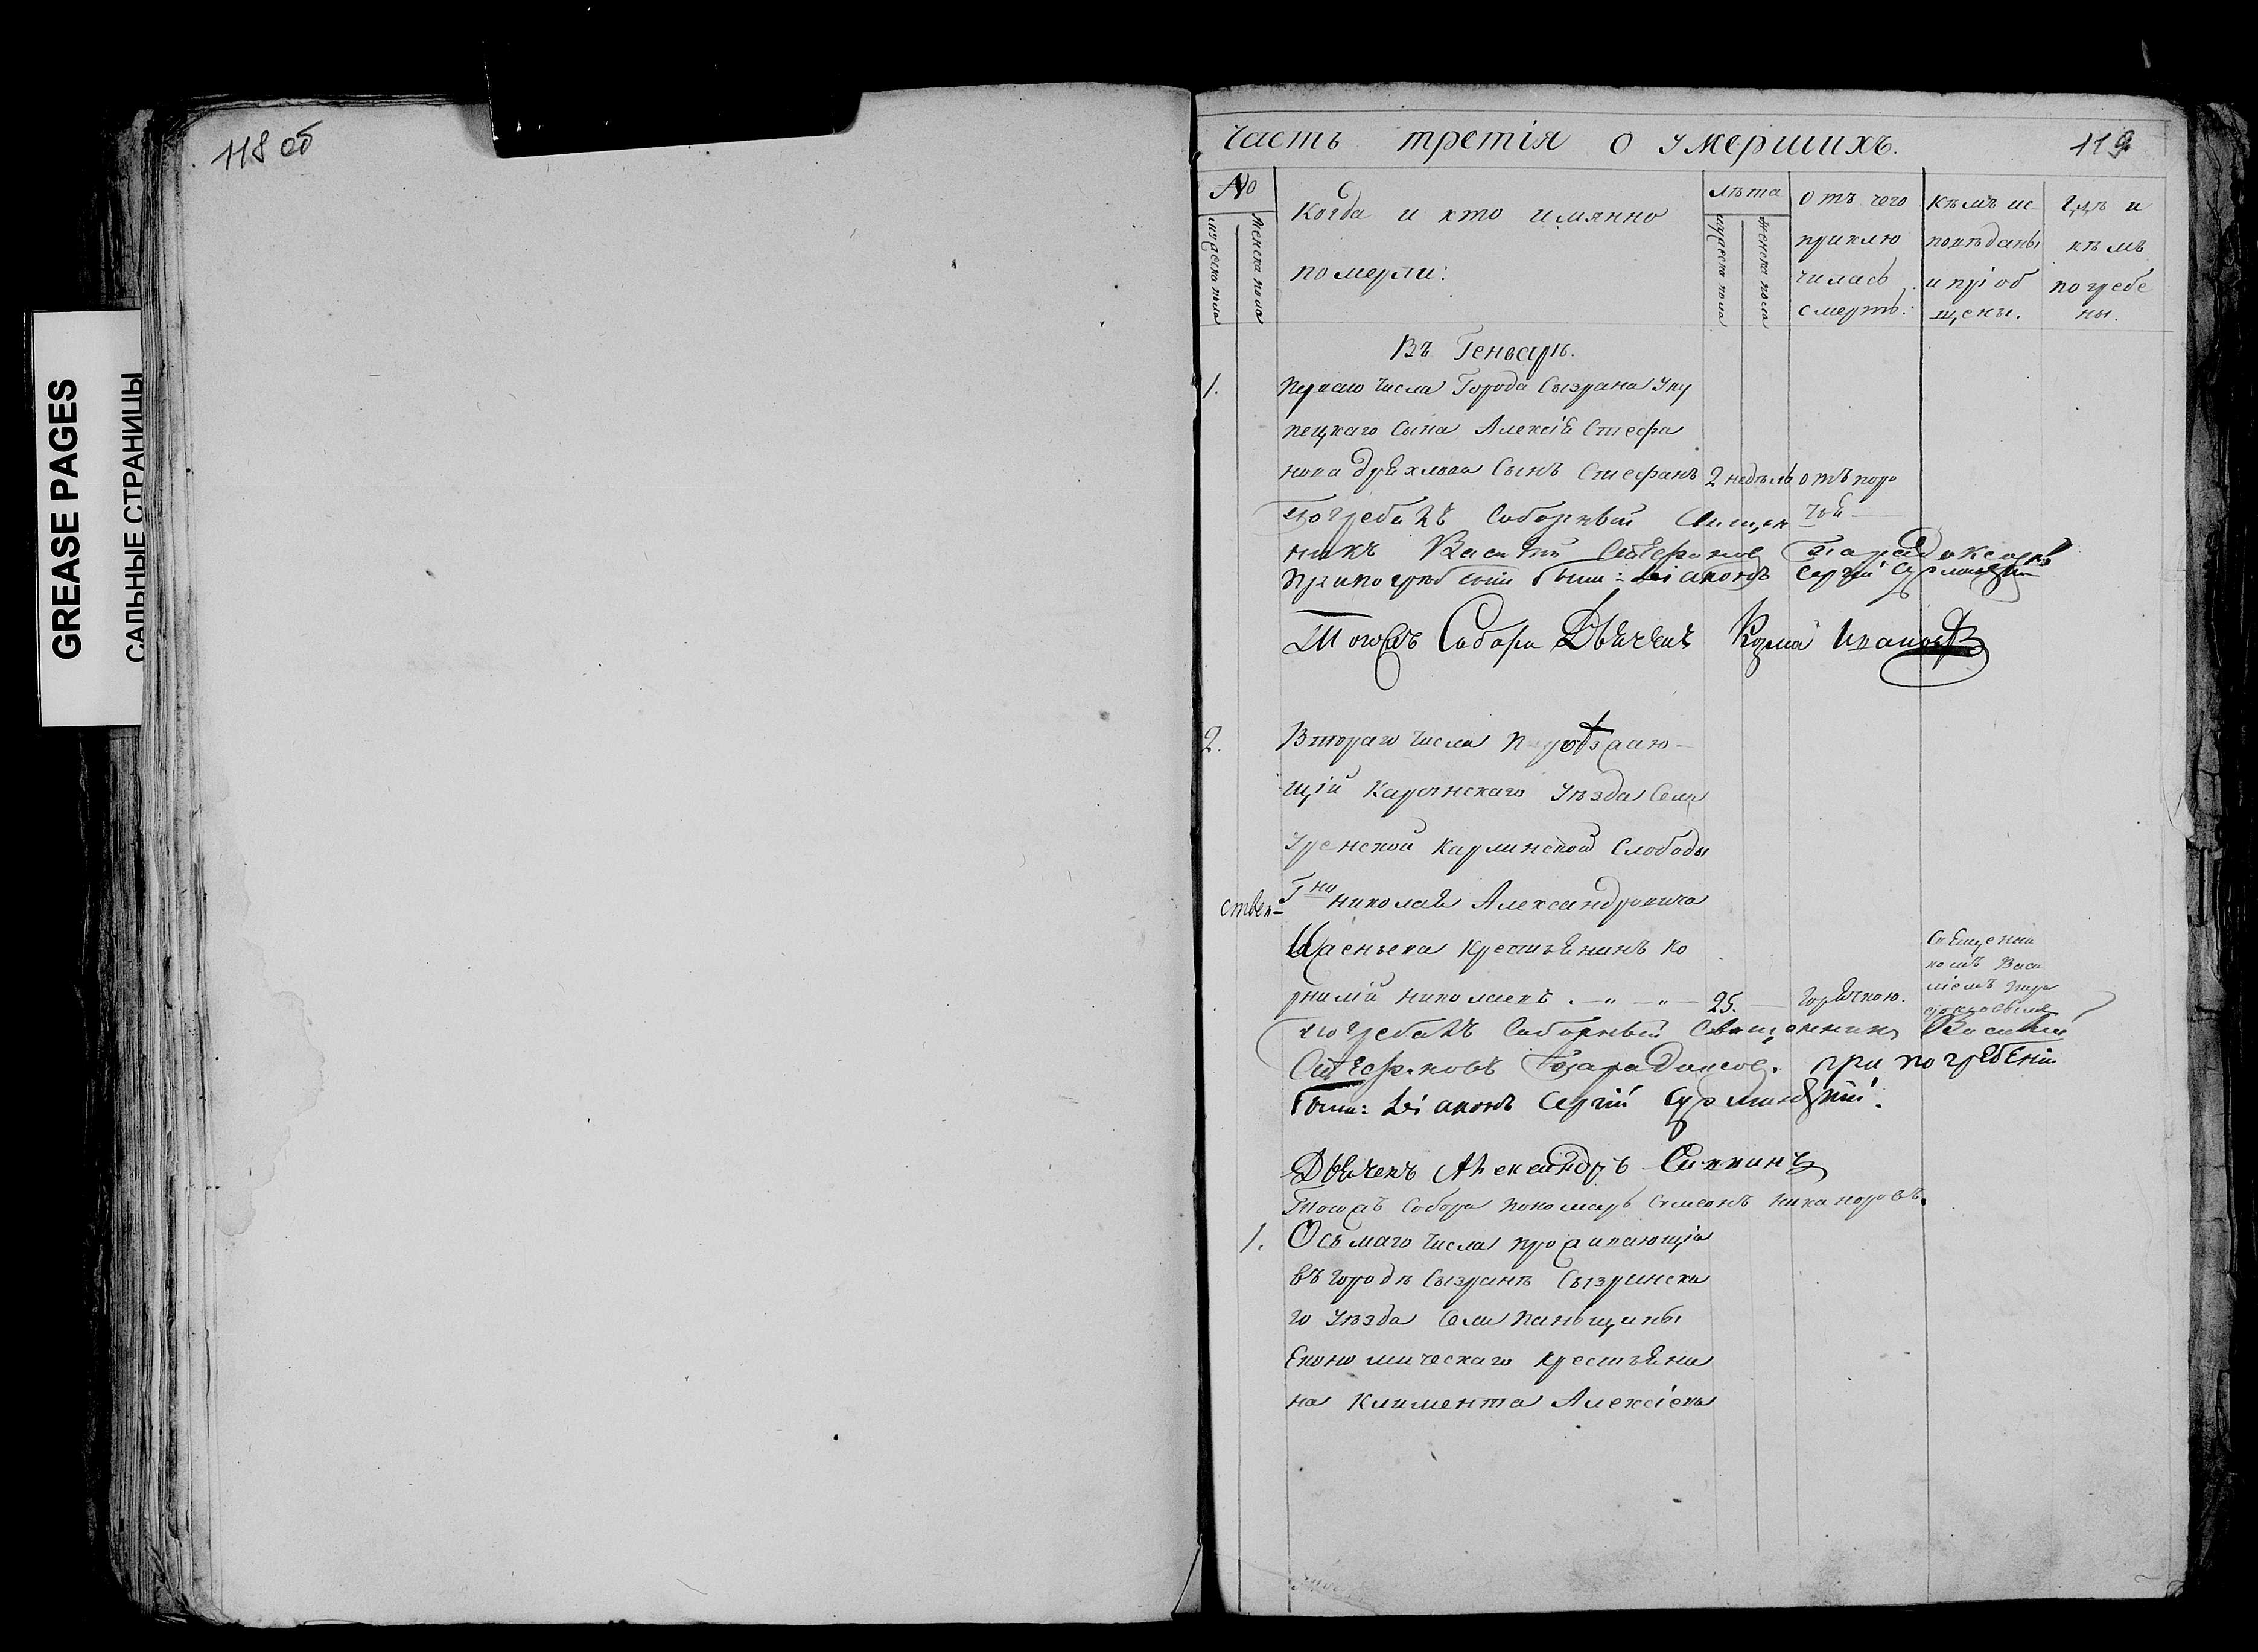 118 об
GREASE PAGES
САЛЬНЫЕ СТРАНИЦЫ
часть третія о умершихъ.
119
№
мужеска пола
женска пола
Когда и кто имянно
померли:
лѣта
мужеска пола
женска пола
отъ чего
приклю
чилась
смерть:
кѣмъ ис
повѣданы
и пріоб
щены.
гдѣ и
кѣмъ
погребе
ны.
Въ Генварѣ.
1.
перваго числа Города Сызрана у ку
пецкаго Сына Алексія Стефа
нова Сынъ Стефанъ 2 недѣль отъ поро
чой
Погребалъ Соборный Священ
никъ Василій Стефановъ Парадоксовъ
при погребеніи были: Діаконъ Сергій
Тогожъ Собора Дьячекъ Козма Ивановъ
2.
Втораго числа
щій Карсунскаго уѣзда Села
Уренской Карлинской Слободы
ствен-
Гна Николая Александровича
крестьянинъ Ко
рнилій Николаевъ. -"- -"- 25. горячкою.
Священни
комъ Васи
ліемъ Пара
доксовымъ
Погребалъ Соборный Священникъ Василій
Стефановъ Парадоксовъ. при погребеніи
были: Діаконъ Сергій
Дьячекъ Александръ
Тогожъ Собора пономарь Симеонъ Никаноровъ.
1.
Осьмаго числа проживающія
въ городѣ Сызранѣ Сызранска
го уѣзда Села Паньщины
Економическаго крестьяни
на Климента Алексіева